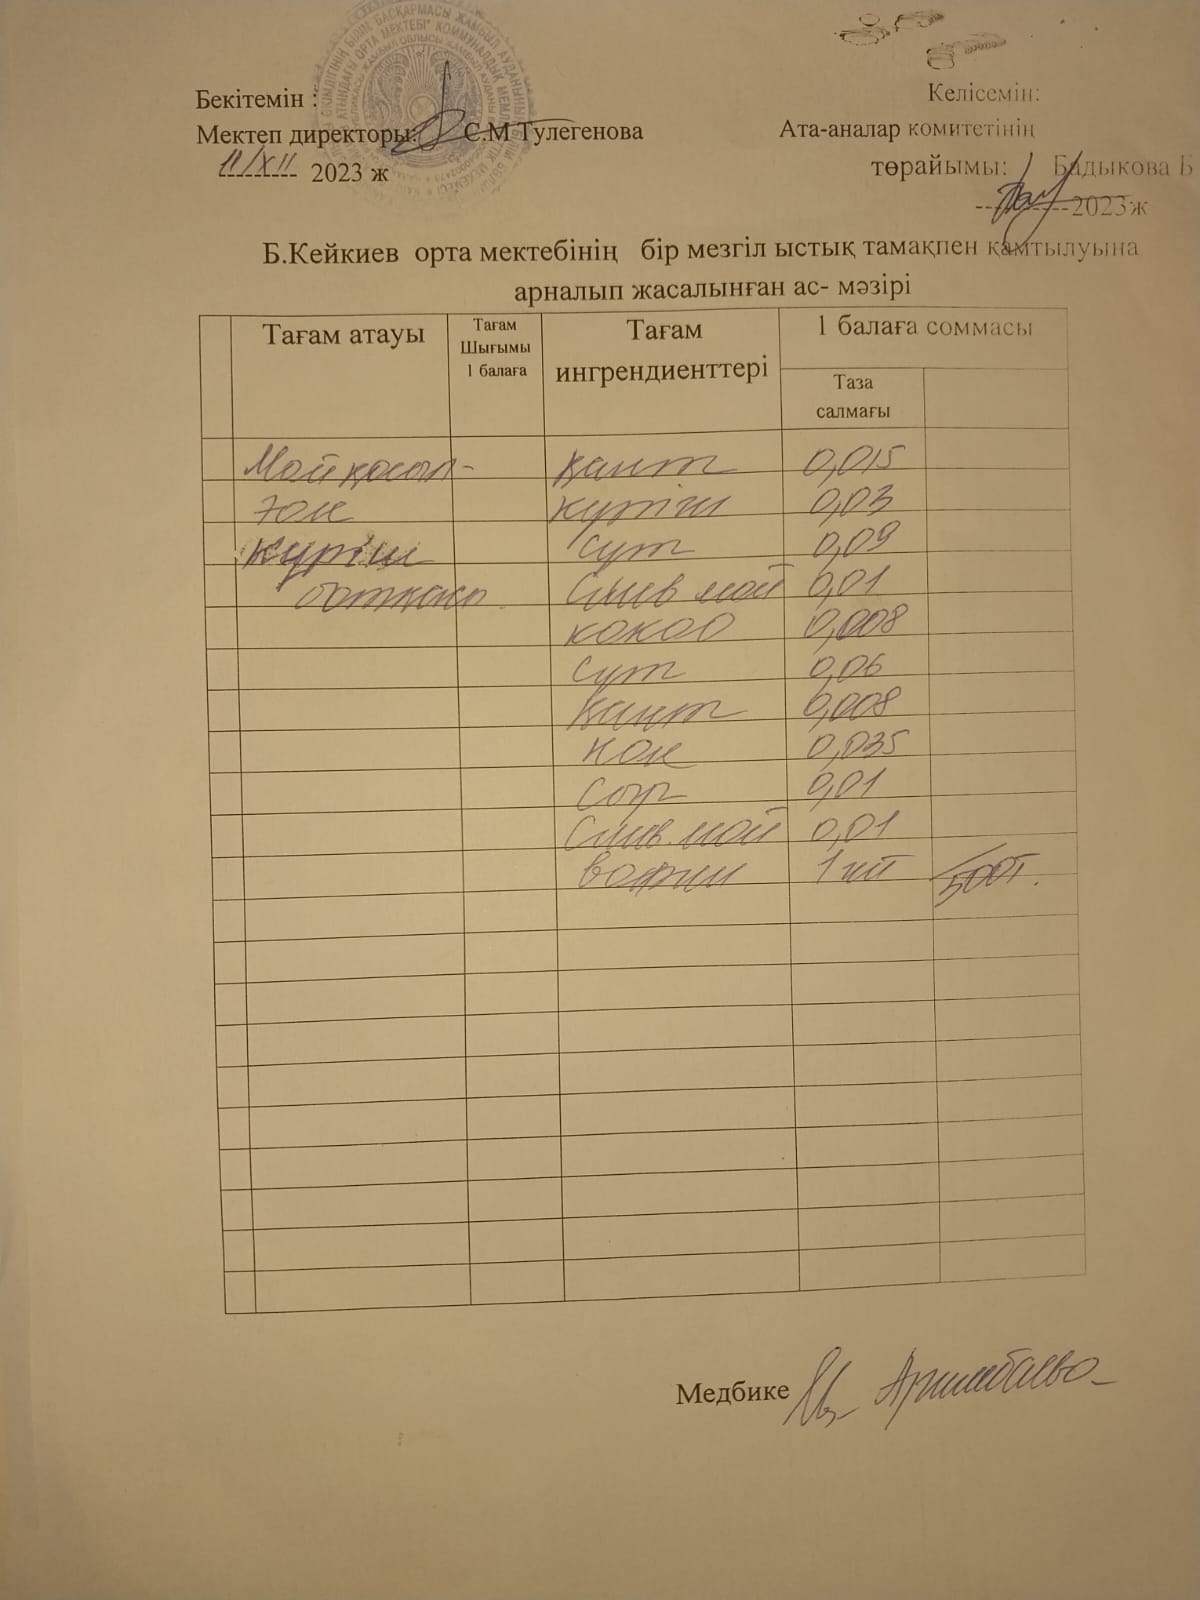 Бекітемін :
Мектеп директоры: С.М Тулегенова
11/XII 2023 ж
Келісемін:
Ата-аналар комитетінің
төрайымы: Бадыкова Б
----------2023ж
Б.Кейкиев орта мектебінің бір мезгіл ыстық тамақпен қамтылуына
арналып жасалынған ас- мәзірі
Тағам атауы
Тағам
Шығымы
1 балаға
Тағам
ингрендиенттері
1 балаға соммасы
Таза
салмағы
Май қосып- қант 0,015
күріш 0,03
күріш сүт 0,09
ботқасы Слив май 0,01
какао 0,008
сүт 0,06
қант 0,008
нан 0,035
Сыр 0,01
Слив. май 0,01
вафли 1 шт 500т.
Медбике